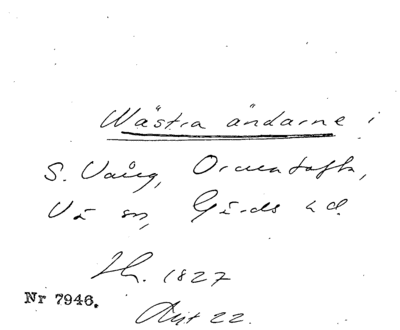 Wästra ändarne i
S. Vång, Ormatofta,
Vä sn, Gärds hd.
Sk. 1827
Nr 7946.
Akt 22.